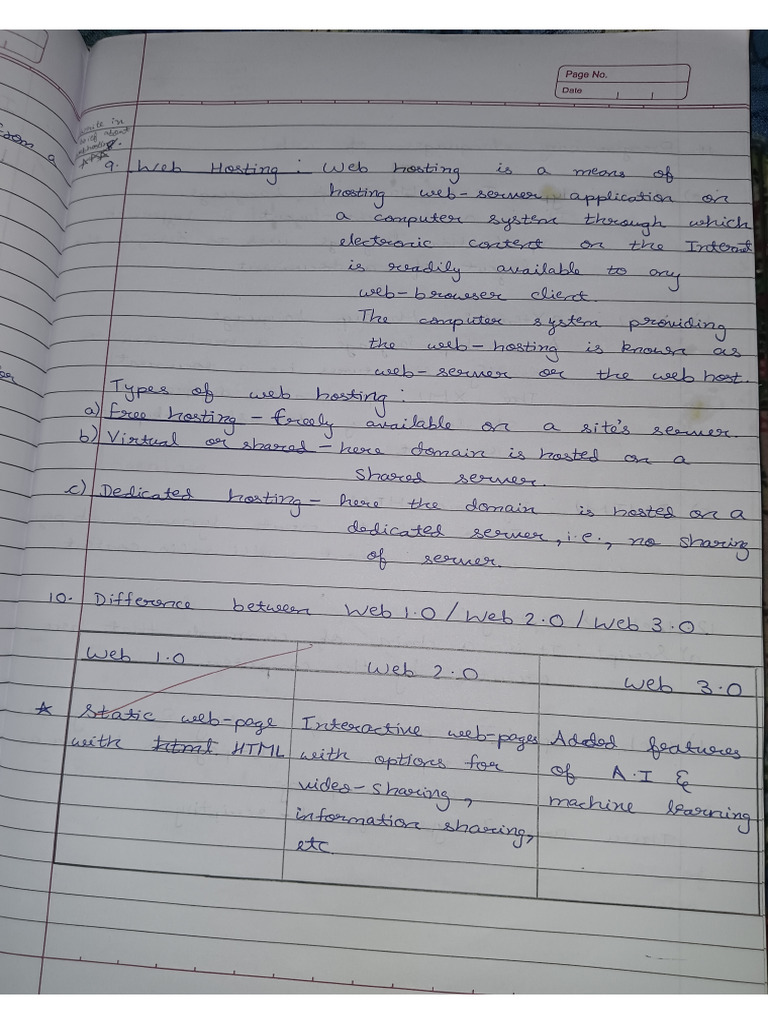 Page No.
Date
from a
write in
brief about
9. Web Hosting : Web hosting is a means of
hosting web-server application on
a computer system through which
electronic content on the Internet
is readily available to any
web-browser client.
The computer system providing
the web-hosting is known as
web-server or the web host.
Types of web hosting :
a) Free hosting - freely available on a site's server.
b) Virtual or shared - here domain is hosted on a
shared server.
c) Dedicated hosting - here the domain is hosted on a
dedicated server, i.e., no sharing
of server.
10. Difference between Web 1.0 / Web 2.0 / Web 3.0.
Web 1.0
Web 2.0
Web 3.0
Static web-page
with html HTML
Interactive web-pages
with options for
video-sharing,
information sharing,
etc.
Added features
of A.I &
machine learning